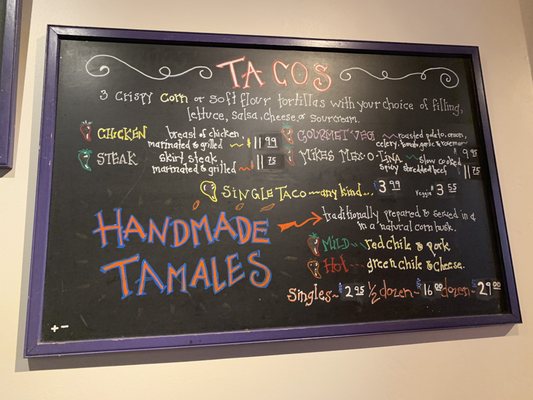 TACOS
3 crispy corn or soft flour tortillas with your choice of filling,
lettuce, salsa, cheese, or sour cream.
CHICKEN breast of chicken, marinated & grilled $11.99
STEAK skirt steak, marinated & grilled $11.75
GOURMET VEGI roasted potato, onion, celery, tomato, garlic & rosemary $9.95
MIKES MEX-O-LINA slow cooked spicy shredded beef $11.75
SINGLE TACO any kind... $3.99 veggie $3.55
HANDMADE
TAMALES
traditionally prepared & served in a
in a natural corn husk.
MILD red chile & pork
HOT green chile & cheese.
Singles $2.95 1/2 dozen $16.00 dozen $29.00
+ -